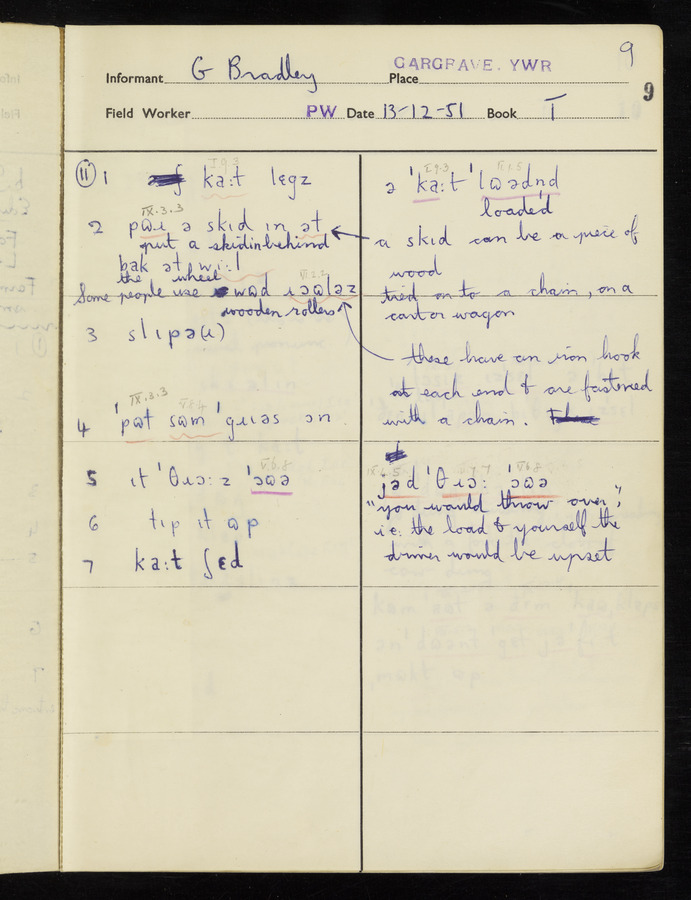 9
GARGRAVE. YWR
Informant G Bradley Place
9
Field Worker PW Date 13-12-51 Book I
I 9.3
(11) 1 ka:t lɛgz
IX.3.3
2 pɷɹ ə skɪd ɪn ət
put a skid in behind
bak ət wi:l
the wheel
VI.2.2
Some people use wɷd ɹɔɷləz
wooden rollers
3 slɪpə(ɹ)
IX.3.3
4 'pɷt sɷm 'gɹɪəs ɔn
VI.6.8
5 ɪt 'θɹɔ:z 'ɔɷə
6 tɪp ɪt ɷp
7 ka:t ʃɛd
I 9.3
ə 'ka:t 'lɷədnd
loaded
a skid can be a piece of
wood
tied on to a chain, on a
cart or wagon
these have an iron hook
at each end & are fastened
with a chain.
jəd 'θɹɔ: 'ɔɷə
"you would throw over",
i.e. the load & yourself the
driver would be upset